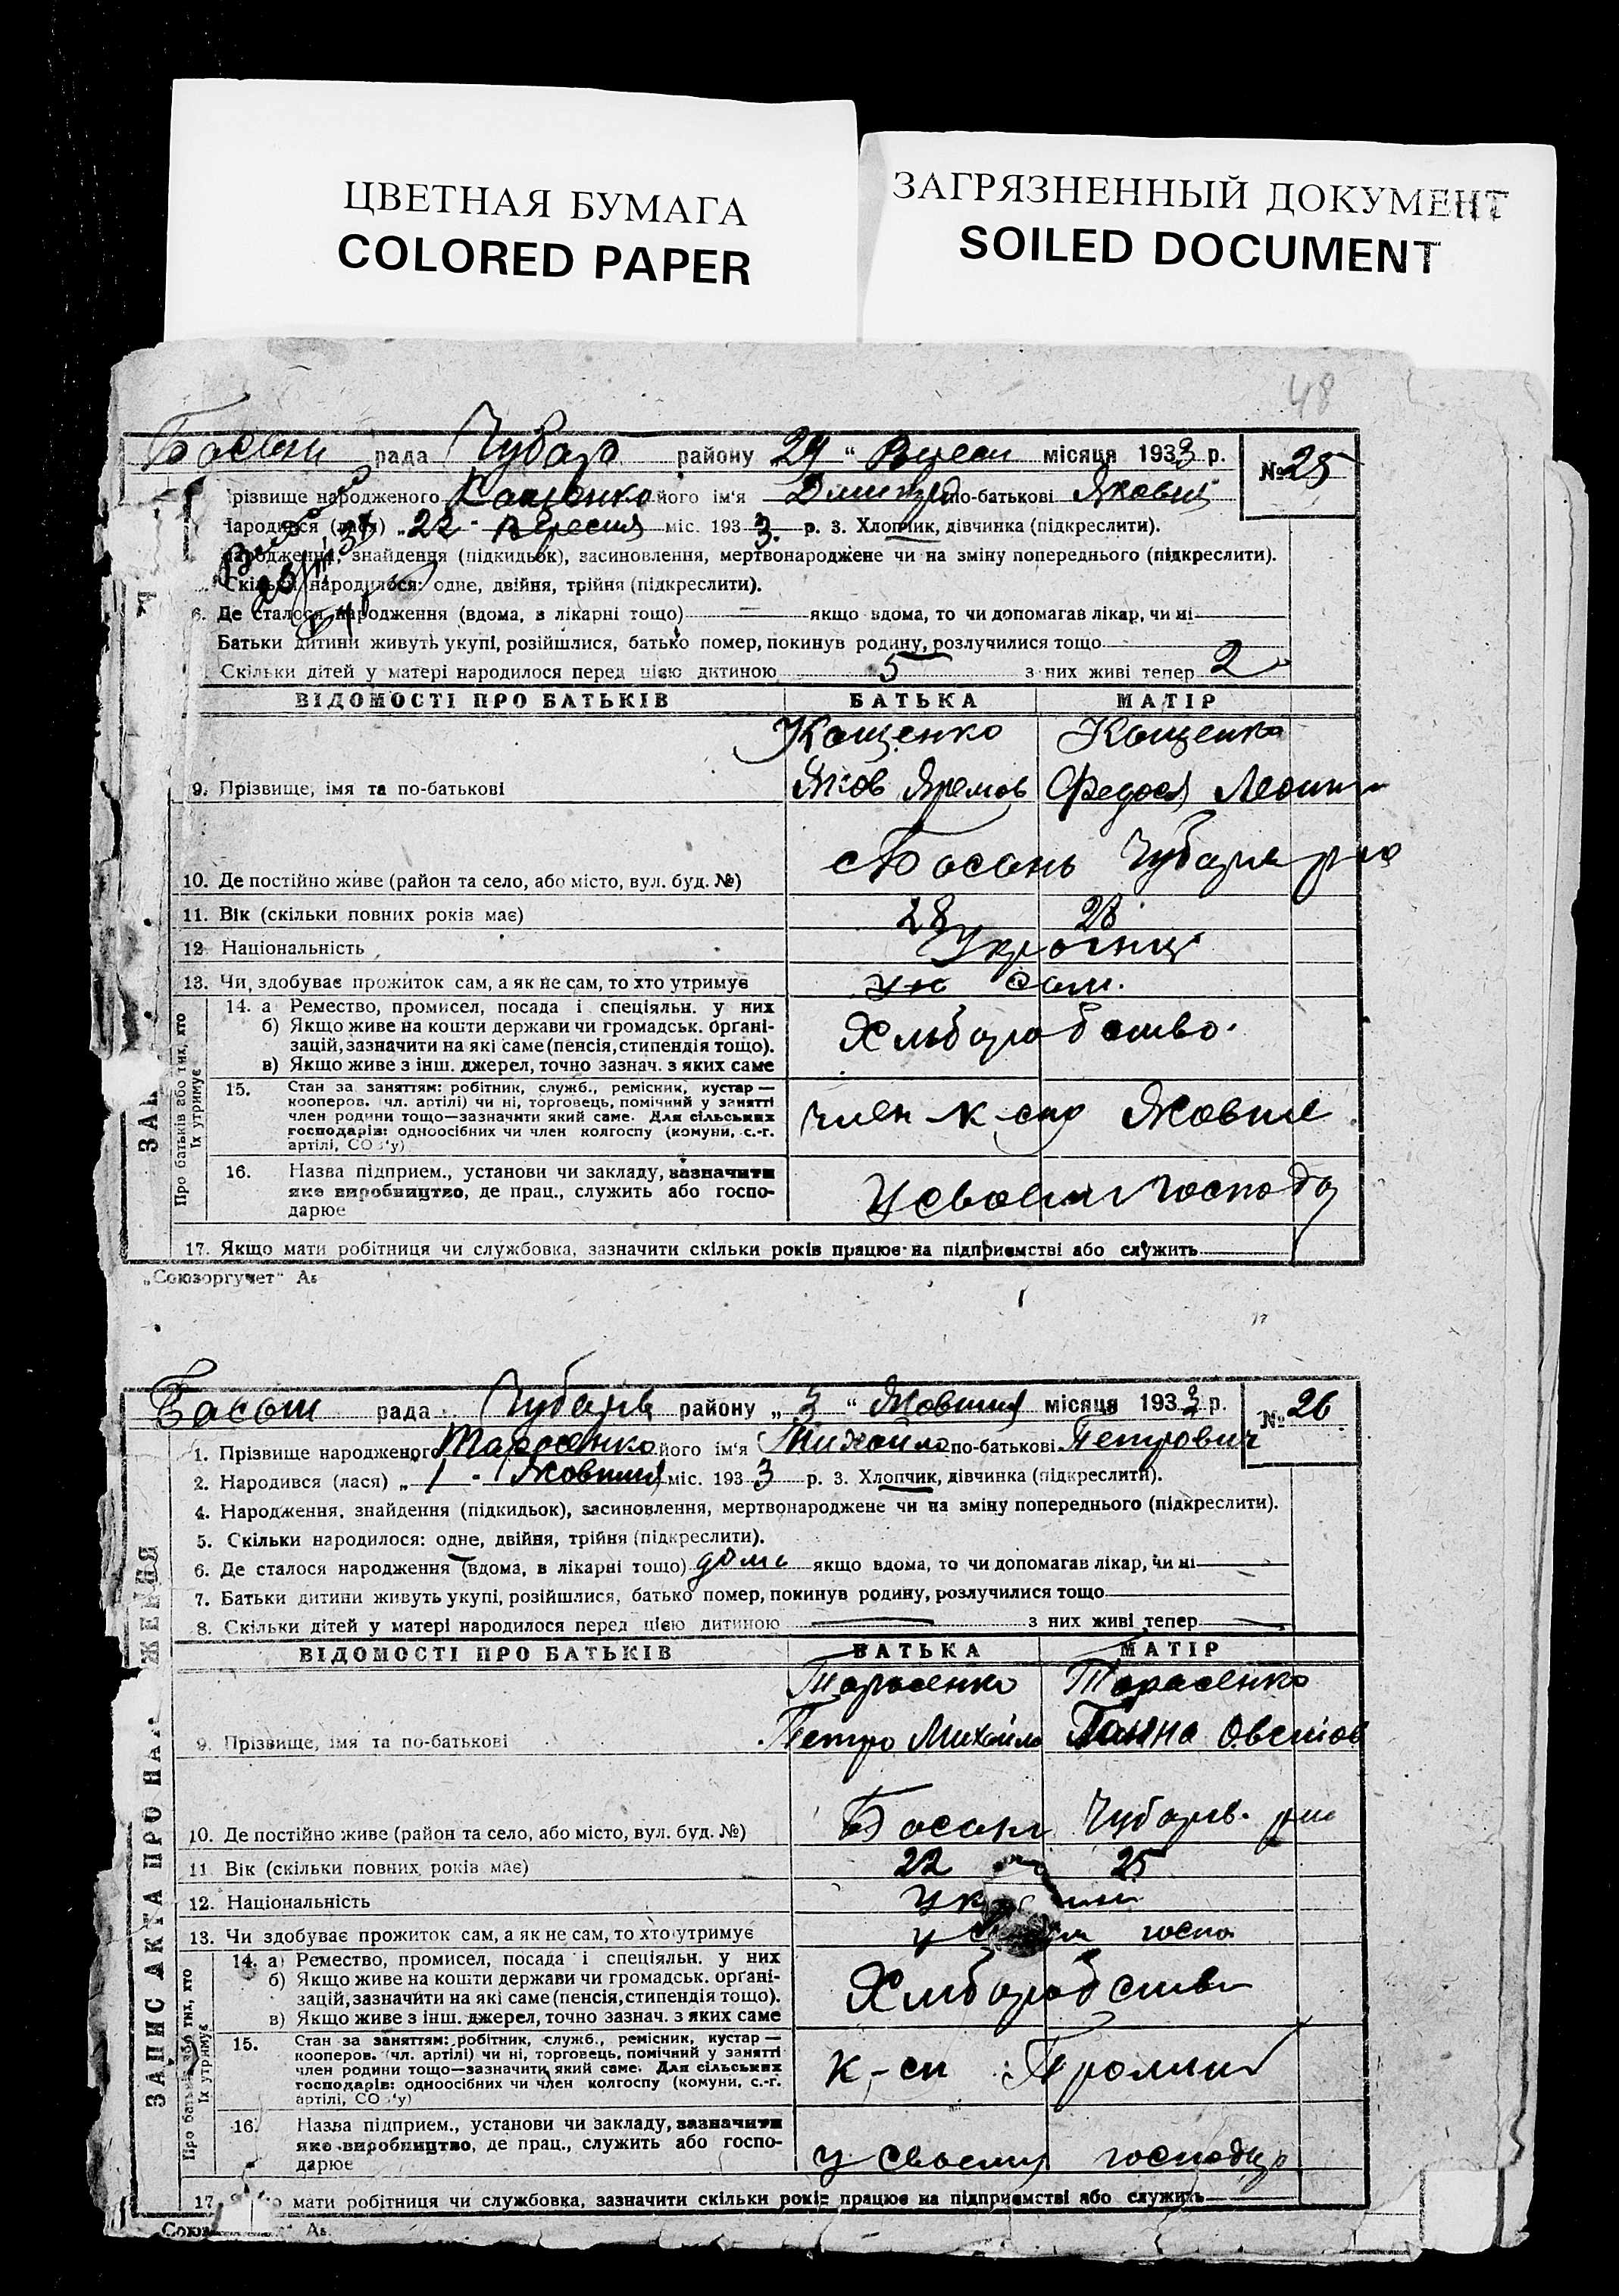 ЦВЕТНАЯ БУМАГА
COLORED PAPER
ЗАГРЯЗНЕННЫЙ ДОКУМЕНТ
SOILED DOCUMENT
48
рада Чубар району 29 " Вересн місяця 1933 р. № 25
прізвище народженого Кощенко його ім'я Дмитро по-батькові Якович
Народився (лася) „ 22 - Вересня міс. 193 3 р. 3. Хлопчик, дівчинка (підкреслити).
народження, знайдення (підкидьок), засиновлення, мертвонароджене чи на зміну попереднього (підкреслити).
Скільки народилося: одне, двійня, трійня (підкреслити).
6. Де сталося народження (вдома, в лікарні тощо) — якщо вдома, то чи допомагав лікар, чи ні
Батьки дитини живуть укупі, розійшлися, батько помер, покинув родину, розлучилися тощо
Скільки дітей у матері народилося перед цією дитиною 5 з них живі тепер 2
ВІДОМОСТІ ПРО БАТЬКІВ БАТЬКА МАТІР
Кощенко Кощенко
9. Прізвище, імя та по-батькові Яков Яремов Федося
10. Де постійно живе (район та село, або місто, вул. буд. №) с Басань Чубаря р-на
11. Вік (скільки повних років має) 28 28
12 Національність Українці
13. Чи здобуває прожиток сам, а як не сам, то хто утримує сам.
14. а Ремество, промисел, посада і спеціяльн. у них
б) Якщо живе на кошти держави чи громадськ. органі-
зацій, зазначити на які саме (пенсія, стипендія тощо).
в) Якщо живе з інш. джерел, точно зазнач. з яких саме
Хліборобство.
15. Стан за заняттям: робітник, служб., ремісник, кустар —
кооперов. (чл. артілі) чи ні, торговець, помічний у занятті
член родини тощо—зазначити який саме. Для сільських
господарів: одноосібних чи член колгоспу (комуни, с.-г.
артілі, СО 'у)
член к-спу Жовтня
16. Назва підприєм., установи чи закладу, зазначити
яке виробництво, де прац., служить або госпо-
дарює
У своєму господ
17. Якщо мати робітниця чи службовка, зазначити скільки років працює на підприємстві або служить
„Союзоргучет" Ав
рада Чубарів району „ 3 " Жовтня місяця 1933 р. № 26
1. Прізвище народженого Тарасенко його ім'я Михайло по-батькові Петрович
2. Народився (лася) „ 1 - Жовтня міс. 193 3 р. 3. Хлопчик, дівчинка (підкреслити).
4. Народження, знайдення (підкидьок), засиновлення, мертвонароджене чи на зміну попереднього (підкреслити).
5. Скільки народилося: одне, двійня, трійня (підкреслити).
6. Де сталося народження (вдома, в лікарні тощо) дома якщо вдома, то чи допомагав лікар, чи ні
7. Батьки дитини живуть укупі, розійшлися, батько помер, покинув родину, розлучилися тощо
8. Скільки дітей у матері народилося перед цією дитиною — з них живі тепер —
ВІДОМОСТІ ПРО БАТЬКІВ БАТЬКА МАТІР
Тарасенко Тарасенко
9. Прізвище, імя та по-батькові Петро Михайло Ганна Овсіїов
10. Де постійно живе (район та село, або місто, вул. буд. №) Басань Чубарів. р-на
11. Вік (скільки повних років має) 22 25
12. Національність
13. Чи здобуває прожиток сам, а як не сам, то хто утримує у госпо
14. а) Ремество, промисел, посада і спеціяльн. у них
б) Якщо живе на кошти держави чи громадськ. органі-
зацій, зазначити на які саме (пенсія, стипендія тощо).
в) Якщо живе з інш. джерел, точно зазнач. з яких саме
Хліборобство
15. Стан за заняттям: робітник, служб., ремісник, кустар —
кооперов. (чл. артілі) чи ні, торговець, помічний у занятті
член родини тощо—зазначити який саме. Для сільських
господарів: одноосібних чи член колгоспу (комуни, с.-г.
артілі, СО 'у)
к-сп
16. Назва підприєм., установи чи закладу, зазначити
яке виробництво, де прац., служить або госпо-
дарює
у своєму господар
17 мати робітниця чи службовка, зазначити скільки років працює на підприємстві або служить
Союз " Ав
ЗАПИС АКТА ПРО НА ЖЕННЯ
Про батьків або тих, хто
їх утримує